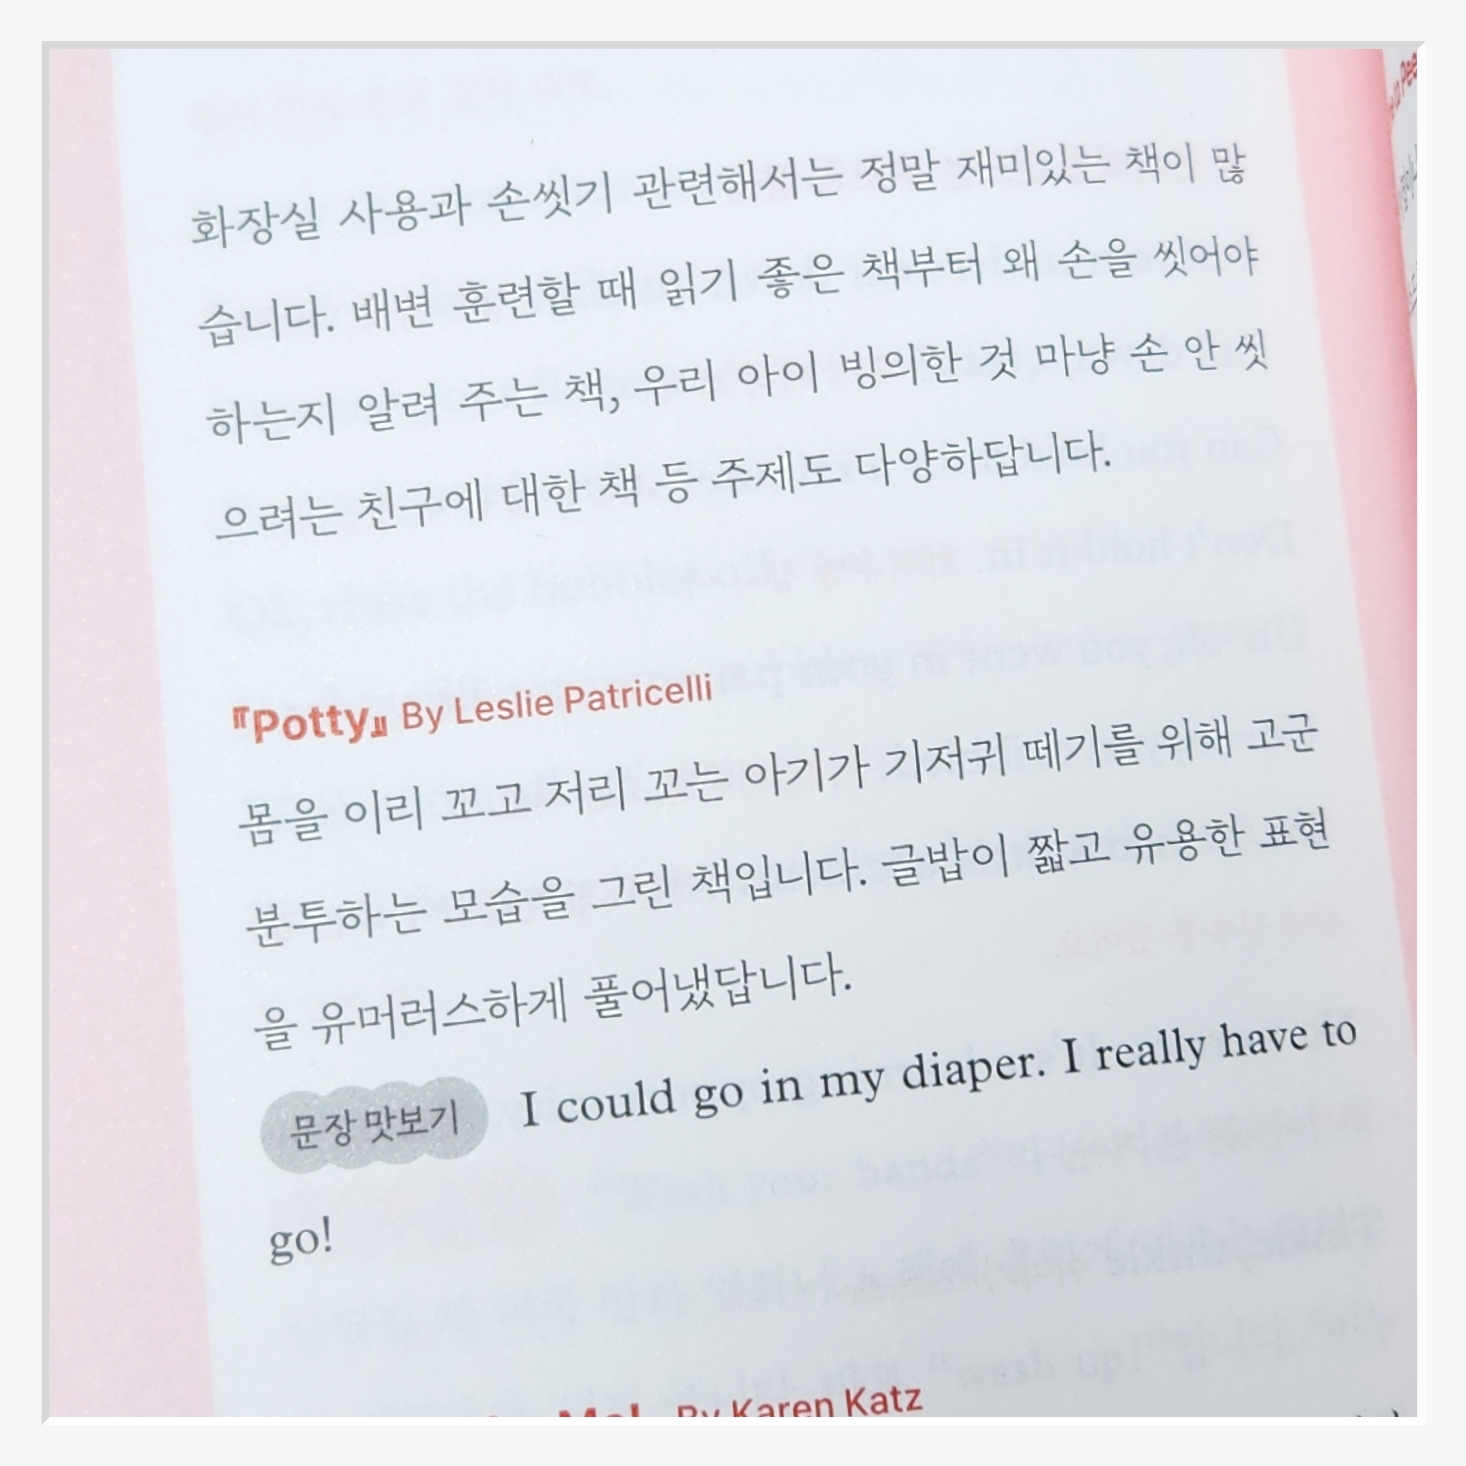 화장실 사용과 손씻기 관련해서는 정말 재미있는 책이 많
습니다. 배변 훈련할 때 읽기 좋은 책부터 왜 손을 씻어야
하는지 알려 주는 책, 우리 아이 빙의한 것 마냥 손 안 씻
으려는 친구에 대한 책 등 주제도 다양하답니다.
『Potty』 By Leslie Patricelli
몸을 이리 꼬고 저리 꼬는 아기가 기저귀 떼기를 위해 고군
분투하는 모습을 그린 책입니다. 글밥이 짧고 유용한 표현
을 유머러스하게 풀어냈답니다.
문장 맛보기 I could go in my diaper. I really have to
go!
By Karen Katz